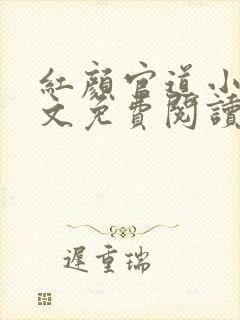 紅顏官道小
文免費閱讀
遲重瑞